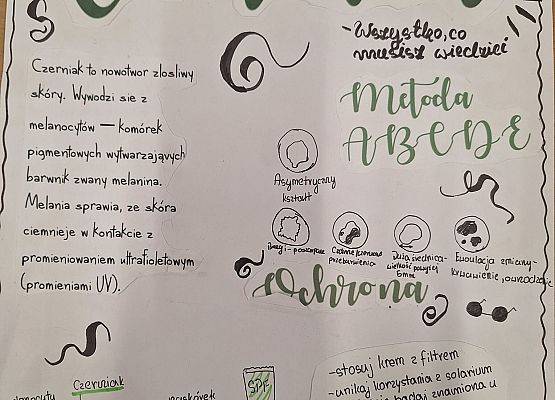 -Wszystko, co
musisz wiedzieć
Czerniak to nowotwór zlosliwy
skóry. Wywodzi sie z
melanocytów — komórek
pigmentowych wytwarzających
barwnik zwany melanina.
Melania sprawia, ze skóra
ciemnieje w kontakcie z
promieniowaniem ultrafioletowym
(promieniami UV).
Metoda
ABCDE
Asymetryczny
kształt
Brzegi - poszarpane
Czerwone
przebarwienia
Duża średnica-
wielkość powyżej
6mm
Ewolucja zmiany-
krwawienie, owrzodzenie
Ochrona
Czerniak
SPF
-stosuj krem z filtrem
-unikaj korzystania z solarium
badaj znamiona u